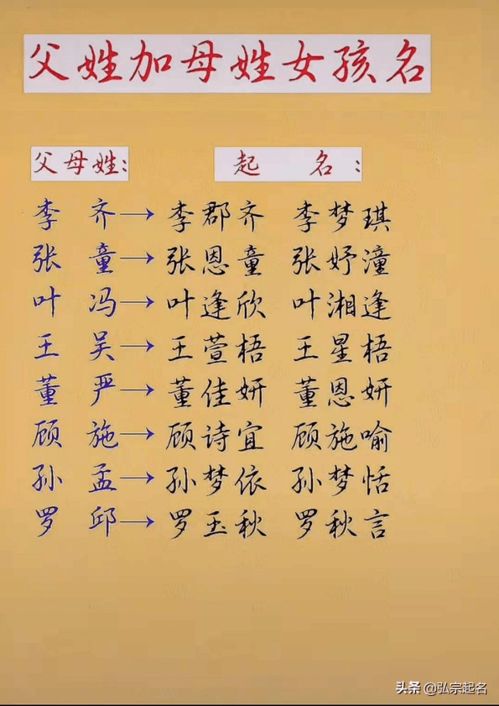 父姓加母姓女孩名
父母姓: 起 名:
李 齐→ 李郡齐 李梦琪
张 童→ 张恩童 张妤潼
叶 冯→ 叶逢欣 叶湘逢
王 吴→ 王萱梧 王星梧
董 严→ 董佳妍 董恩妍
顾 施→ 顾诗宜 顾施喻
孙 孟→ 孙梦依 孙梦恬
罗 邱→ 罗玉秋 罗秋言
头条 @弘宗起名